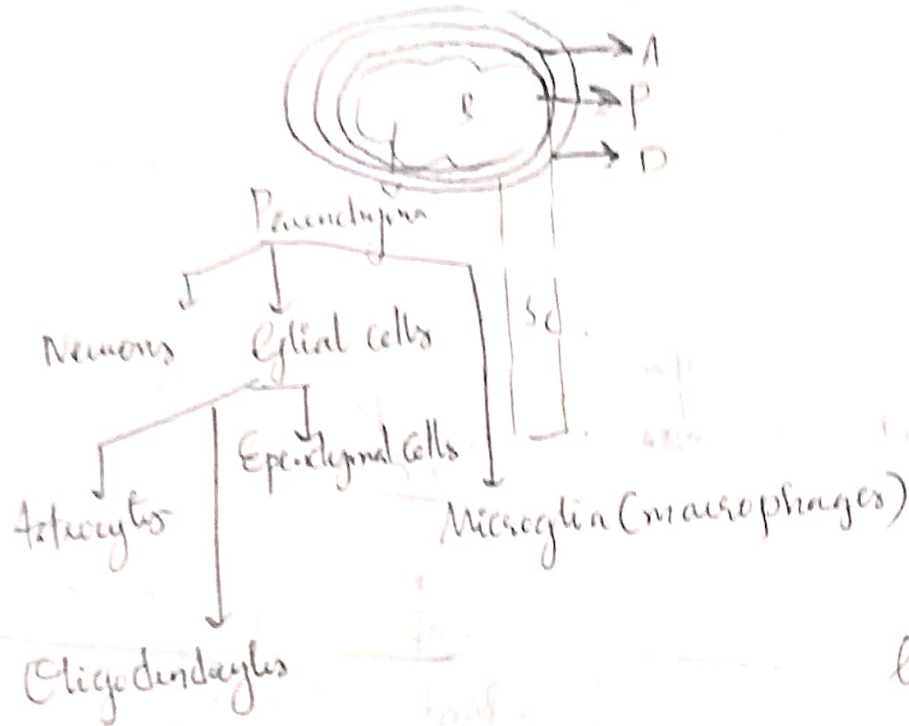 A
B
P
D
Parenchyma
Neurons Glial cells
Sc
Ependymal cells
Astrocytes
Microglia (macrophages)
Oligodendrocytes